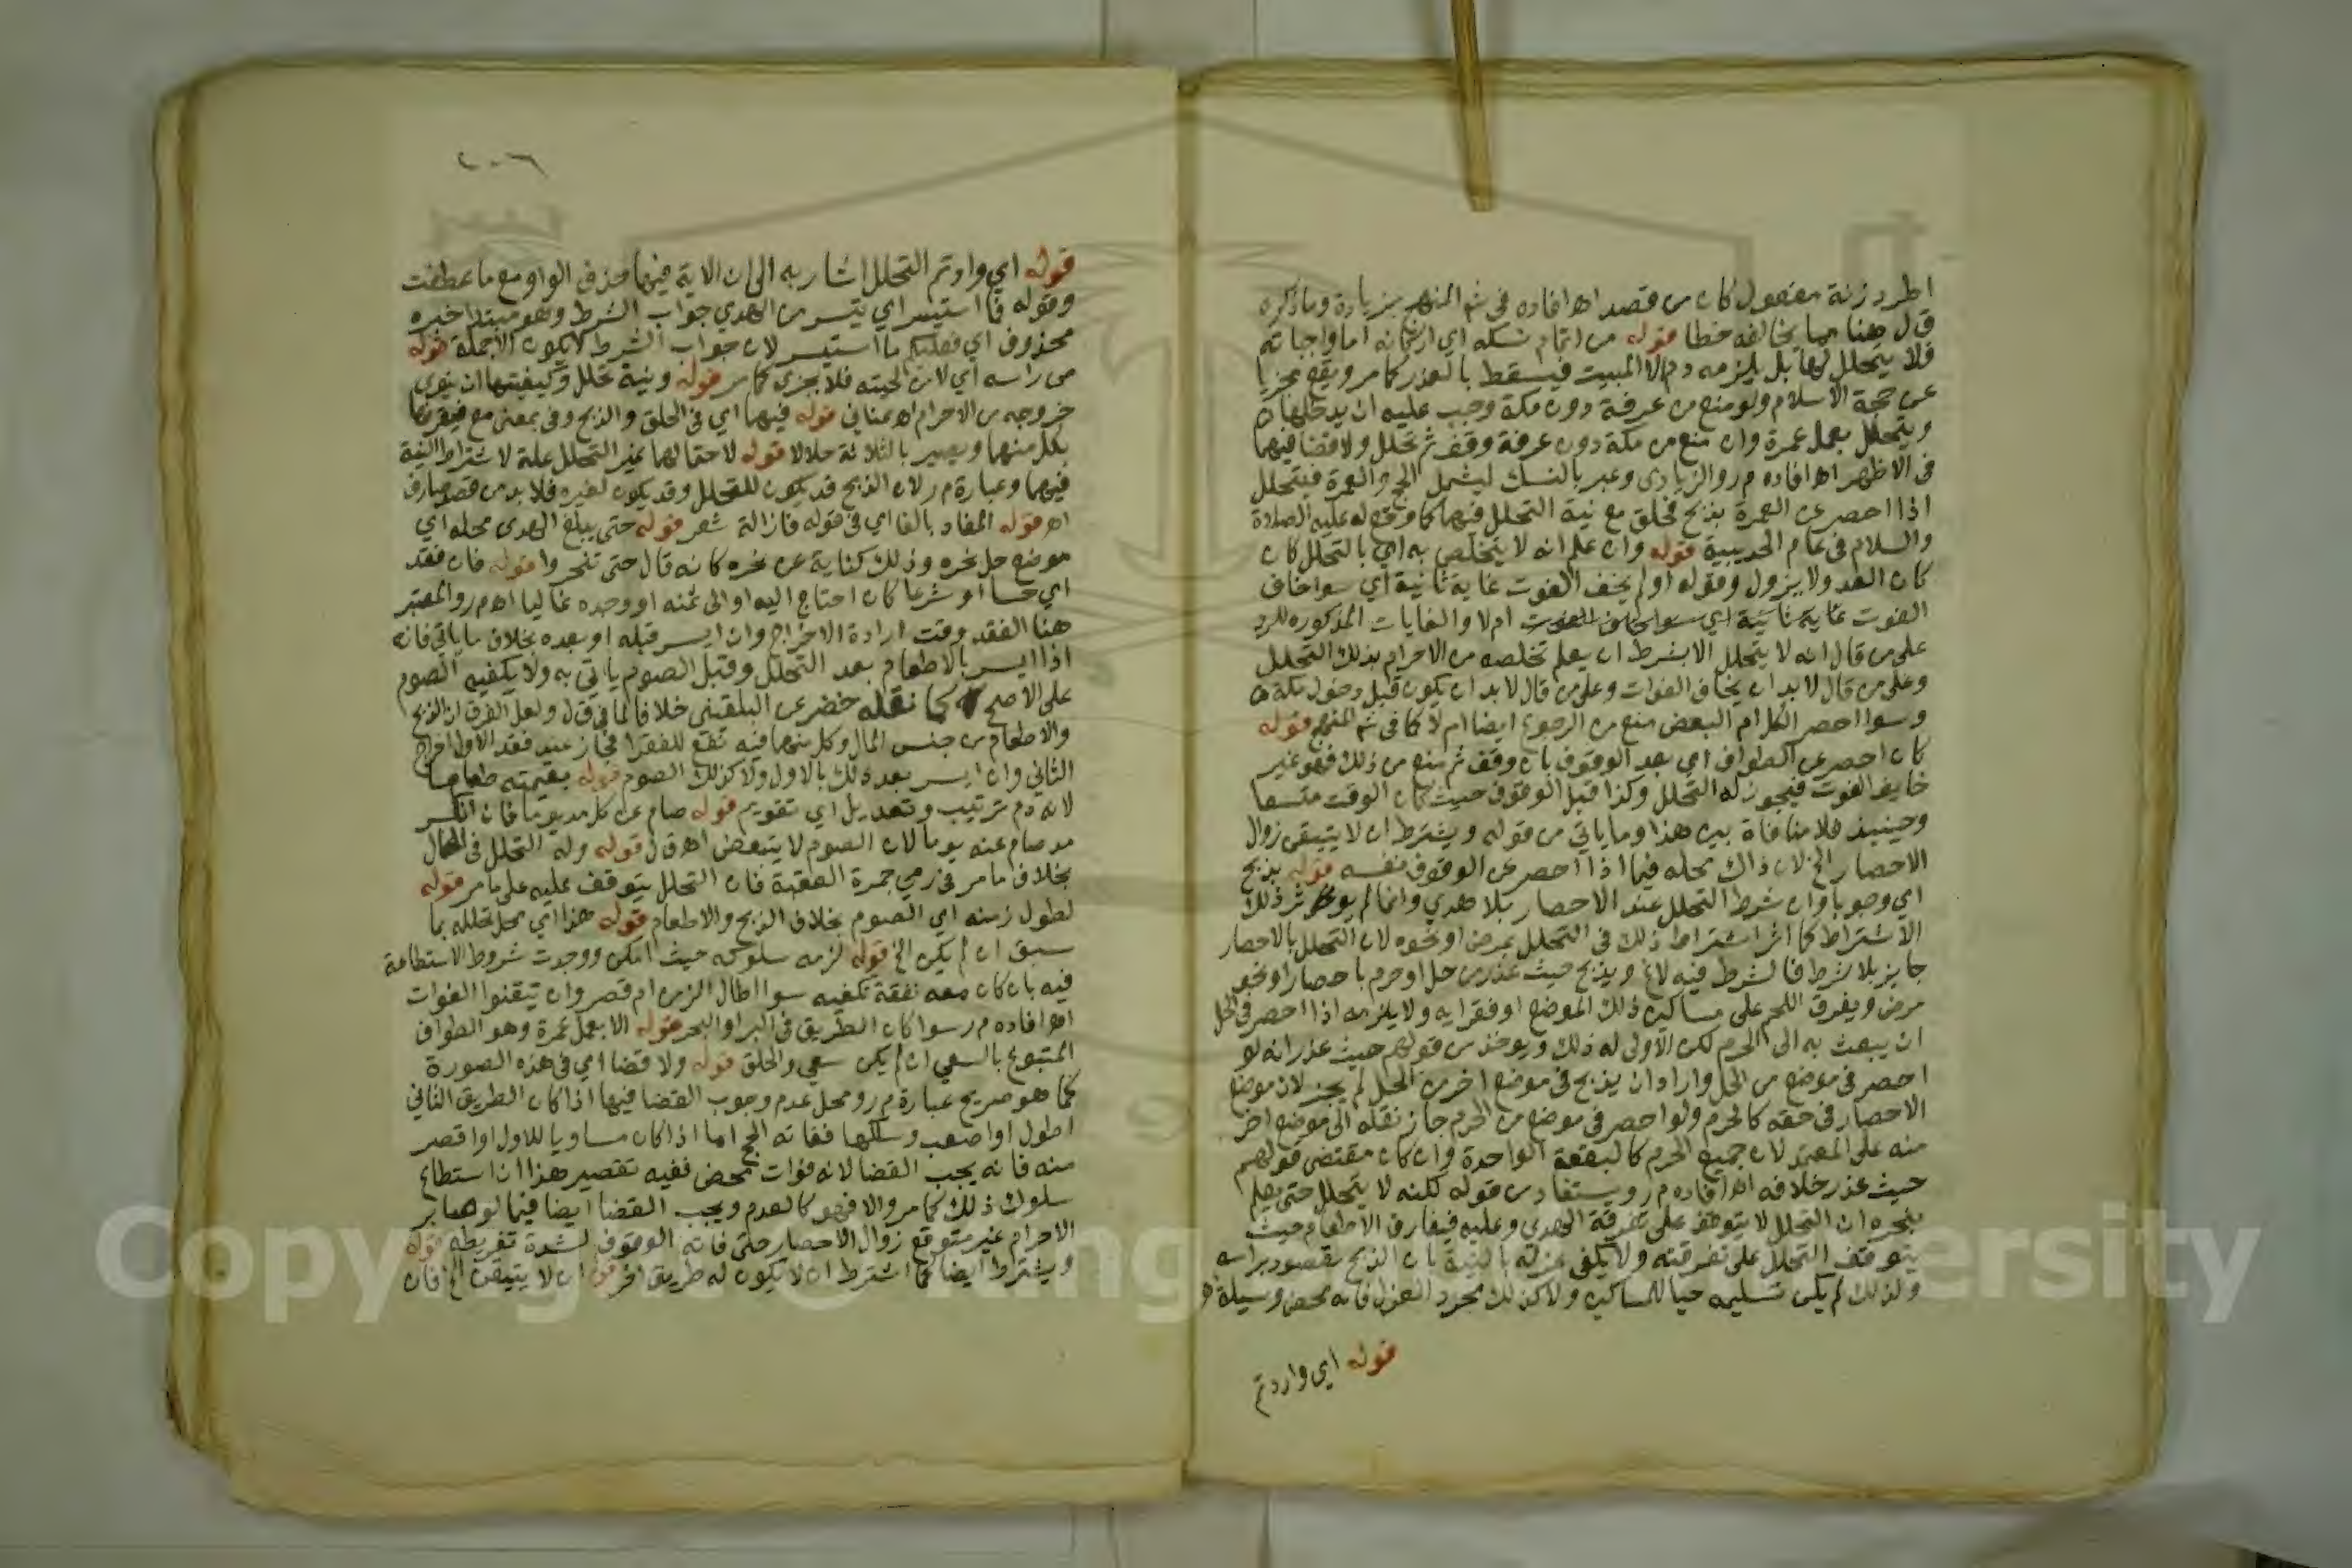 اطرد زنة مفعول كان من قصد اه افاده في شرح المنهج بزيادة وما ذكره
ق ل هنا مما يخالفه خطا قوله من اتمام نسكه اي اركانه اما واجباته
فلا يتحلل لها بل يلزمه دم الا المبيت فيسقط بالعذر كما مر ويقع مجزيا
عن حجة الاسلام ولو منع من عرفة دون مكة وجب عليه ان يدخلها
ويتحلل بعمل عمرة وان منع من مكة دون عرفة وقف ثم تحلل ولا قضا فيهما
في الاظهر اه افاده م ر والزيادي وعبر بالنسك ليشمل الحج والعمرة فيتحلل
اذا احصر عن العمرة بذبح فحلق مع نية التحلل فيهما كما وقع له عليه الصلاة
والسلام في عام الحديبية قوله وان علم انه لا يتخلص به اي بالتحلل كان
كان العدو لا يزول وقوله او لم يخف الفوت غاية ثانية اي سوا خاف
الفوت غاية ثانية اي سوا خاف الفوت ام لا والغايات المذكوره للرد
على من قال انه لا يتحلل الا بشرط ان يعلم تخلصه من الاحرام بذلك التحلل
وعلى من قال لا بد ان يخاف الفوات وعلى من قال لا بد ان يكون قبل دخول مكة
وسوا احصر الكل ام البعض منع من الرجوع ايضا ام لا كما في شرح المنهج قوله
كان احصر عن الطواف اي بعد الوقوف بان وقف ثم منع من ذلك فهو غير
خايف الفوت فيجوز له التحلل وكذا قبل الوقوف حيث كان الوقت متسعا
وحينيذ فلا منافاة بين هذا وما ياتي من قوله ويشترط ان لا يتيقن زوال
الاحصار الخ لان ذاك محله فيما اذا احصر عن الوقوف نفسه قوله بذبح
اي وجوبا وان شرط التحلل عند الاحصار بلا هدي وانما لم يوثر ذلك
الاشتراط كما اثر اشتراط ذلك في التحلل بمرض او نحوه لان التحلل بالاحصار
جايز بلا شرط فالشرط فيه لاغ ويذبح حيث عذر من حل او حرم باحصار او نحو
مرض ويفرق اللحم على مساكين ذلك الموضع او فقرايه ولا يلزمه اذا احصر في الحل
ان يبعث به الى الحرم لكن الاولى له ذلك ويوخذ من قولهم حيث عذر انه لو
احصر في موضع من الحل واراد ان يذبح في موضع اخر من الحل لم يجز لان موضع
الاحصار في حقه كالحرم ولو احصر في موضع من الحرم جاز نقله الى موضع اخر
منه على المعتمد لان جميع الحرم كالبقعة الواحدة وان كان مقتضى قولهم
حيث عذر خلافه اه افاده م ر ويستفاد من قوله لكنه لا يتحلل حتى يعلم
بنحره ان التحلل لا يتوقف على تفرقة الهدي وعليه فيفارق الاطعام حيث
يتوقف التحلل على تفرقته ولا يكفي عزله بالنية بان الذبح مقصود براسه
ولذلك لم يكن تسليمه حيا للمساكين ولا كذلك مجرد العزل فانه محض وسيلة
قوله اي واردتم
٢٠٦
قوله اي واردتم التحلل اشار به الى ان الاية فيها حذف الواو مع ما عطفت
وقوله فما استيسر اي تيسر من الهدي جواب الشرط وهو مبتدا خبره
محذوف اي فعليكم ما استيسر لان جواب الشرط لا يكون الا جملة قوله
من راسه اي لا من لحيته فلا يجزي كما مر قوله ونية تحلل وكيفيتها ان ينوي
خروجه من الاحرام اه عناني قوله فيهما اي في الحلق والذبح وفي بمعنى مع فيقرنها
بكل منهما ويصير بالثلاثة حلالا قوله لاحتمالهما غير التحلل علة لاشتراط النية
فيهما وعبارة م ر لان الذبح قد يكون للتحلل وقد يكون لغيره فلا بد من قصد صارف
اه قوله المفاد بالفا اي في قوله فازالة شعر قوله حتى يبلغ الهدى محله اي
موضع حل نحره وذلك كناية عن نحره كانه قال حتى تنحروا قوله فان فقد
اي حسا او شرعا كان احتاج اليه او الى ثمنه او وجده غاليا اه م ر والمعتبر
هنا الفقد وقت ارادة الاخراج وان ايسر قبله او بعده بخلاف ما ياتي فانه
اذا ايسر بالاطعام بعد التحلل وقبل الصوم ياتي به ولا يكفيه الصوم
على الاصح كما نقله خضر عن البلقيني خلافا لما في ق ل ولعل الفرق ان الذبح
والاطعام من جنس المال وكل منهما فيه نفع للفقرا فجاز عند فقد الاول اخراج
الثاني وان ايسر بعد ذلك بالاول ولا كذلك الصوم قوله بقيمته طعاما
لانه دم ترتيب وتعديل اي تقويم قوله صام عن كل مد يوما فان انكسر
مد صام عنه يوما لان الصوم لا يتبعض اه ق ل قوله وله التحلل في الحال
بخلاف ما مر في رمي جمرة العقبة فان التحلل يتوقف عليه على ما مر قوله
لطول زمنه اي الصوم بخلاف الذبح والاطعام قوله هذا اي محل تحلله بما
سبق ان لم يكن الخ قوله لزمه سلوكه حيث امكن ووجدت شروط الاستطاعة
فيه بان كان معه نفقة تكفيه سوا طال الزمن ام قصر وان تيقنوا الفوات
اه افاده م ر سوا كان الطريق في البر او البحر قوله الا بعمل عمرة وهو الطواف
المتبوع بالسعي ان لم يكن سعي والحلق قوله ولا قضا اي في هذه الصورة
كما هو صريح عبارة م ر ومحل عدم وجوب القضا فيها اذا كان الطريق الثاني
اطول او اصعب وسلكها ففاته الحج اما اذا كان مساويا للاول او اقصر
منه فانه يجب القضا لانه فوات محض ففيه تقصير هذا ان استطاع
سلوك ذلك كما مر والا فهو كالعدم ويجب القضا ايضا فيما لو صابر
الاحرام غير متوقع زوال الاحصار حتى فاته الوقوف لشدة تفريطه قوله
ويشترط ايضا كما اشترط ان لا يكون له طريق اخر قوله ان لا يتيقن الخ فان
Copyright © King University